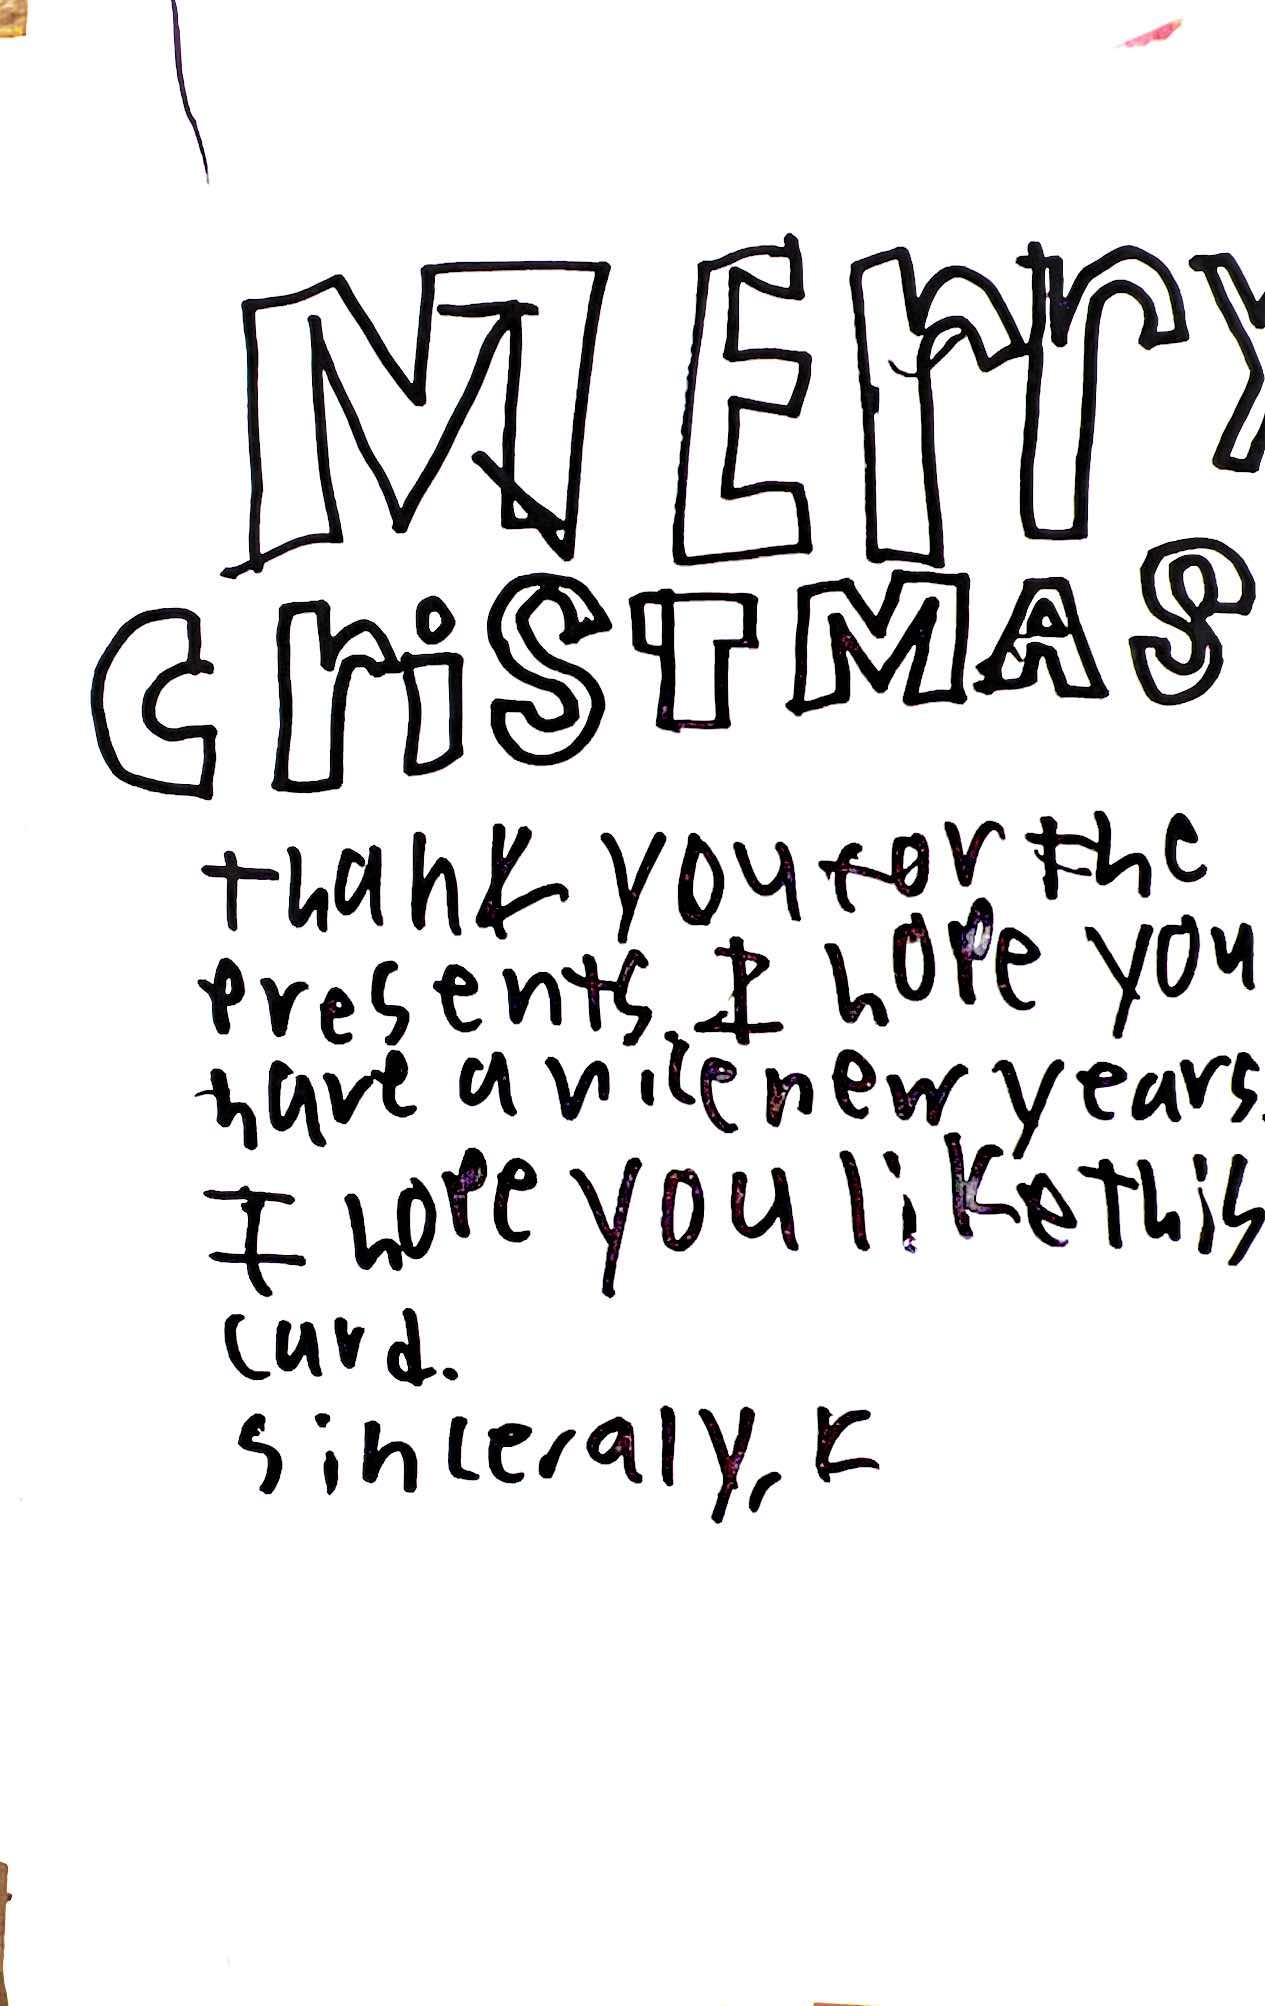 MErry
CriSTMAS
thank you for the
presents. I hope you
have a nice new years.
I hope you like this
card.
sinceraly, K